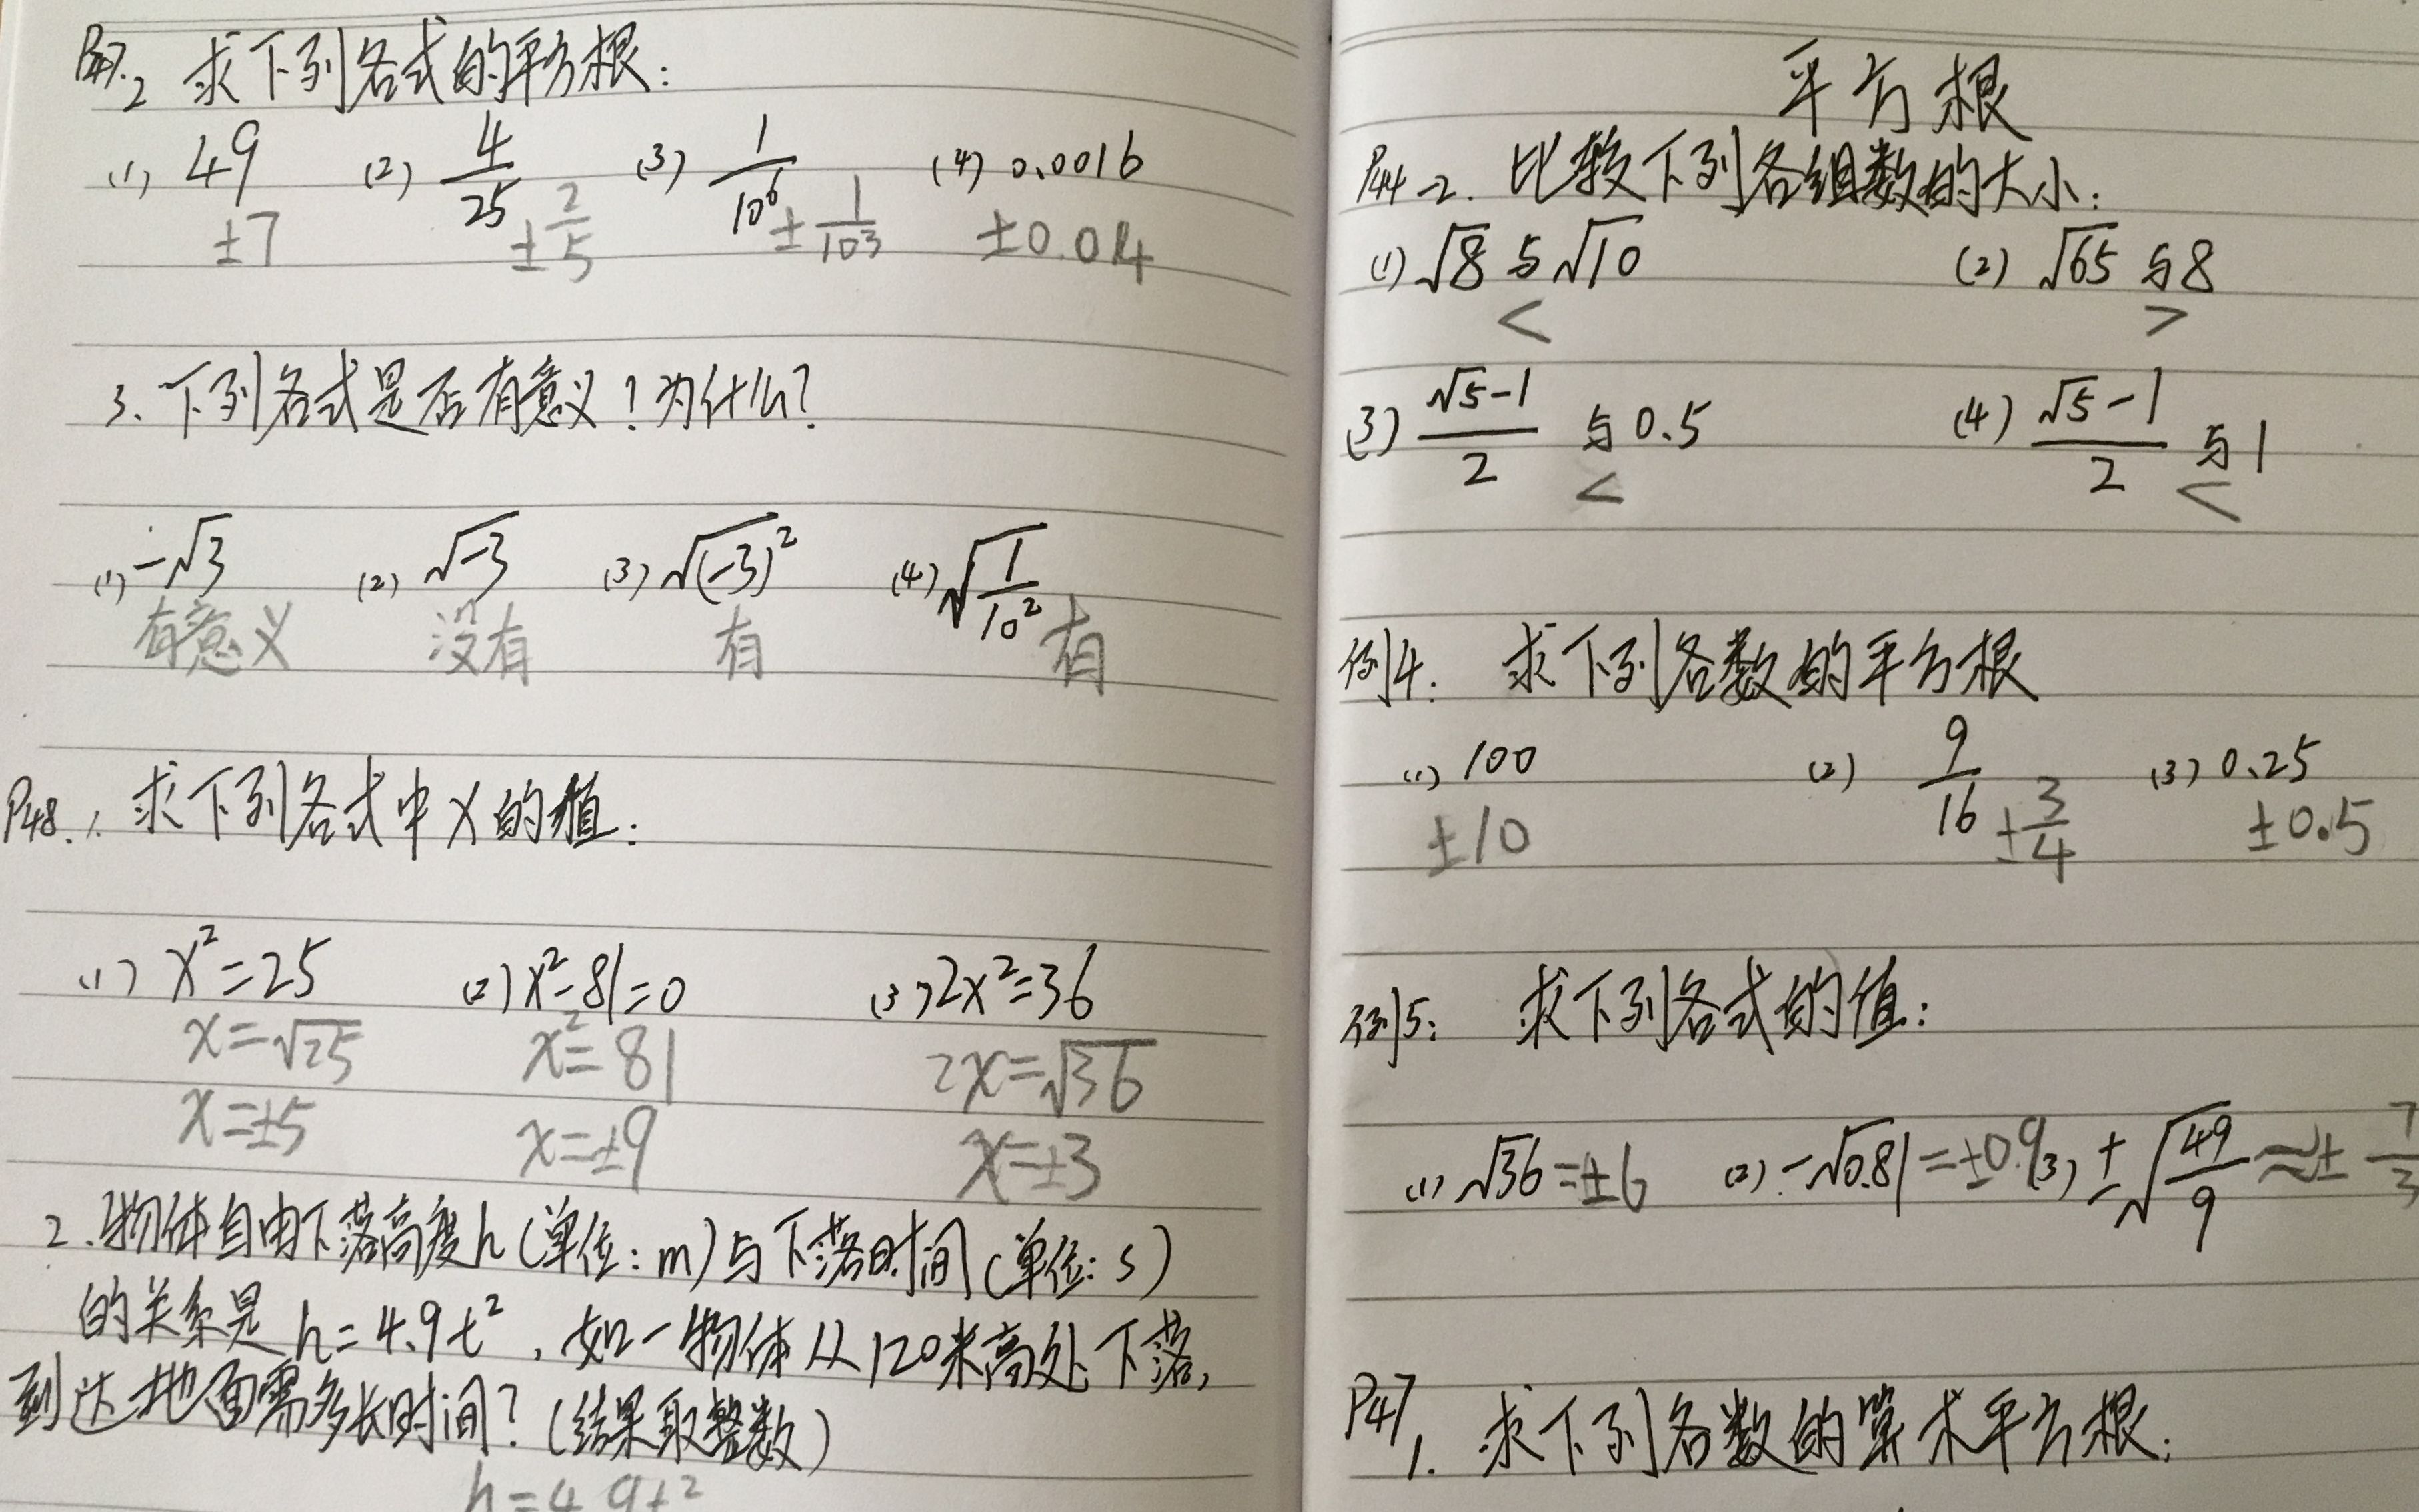 P47.2 求下列各式的平方根:
(1) 49 (2) 4/25 (3) 1/10⁶ (4) 0.0016
±7 ±2/5 ±1/10³ ±0.04
3.下列各式是否有意义?为什么?
(1) -√3 (2) √-3 (3) √(-3)² (4) √(1/10²)
有意义 没有 有 有
P48.1.求下列各式中x的值:
(1) x²=25 (2) x²-81=0 (3) 2x²=36
x=√25 x²=81 2x=√36
x=±5 x=±9 x=±3
2.物体自由下落高度h(单位:m)与下落时间(单位:s)
的关系是h=4.9t²,如一物体从120米高处下落,
到达地面需多长时间?(结果取整数)
h=4.9t²
平方根
P44-2.比较下列各组数的大小:
(1) √8与√10 (2) √65与8
< >
(3) (√5-1)/2 与0.5 (4) (√5-1)/2 与1
< <
例4. 求下列各数的平方根
(1) 100 (2) 9/16 (3) 0.25
±10 ±3/4 ±0.5
例5: 求下列各式的值:
(1) √36=±6 (2) -√0.81=±0.9 (3) ±√(49/9)≈±7/3
P47
1. 求下列各数的算术平方根: